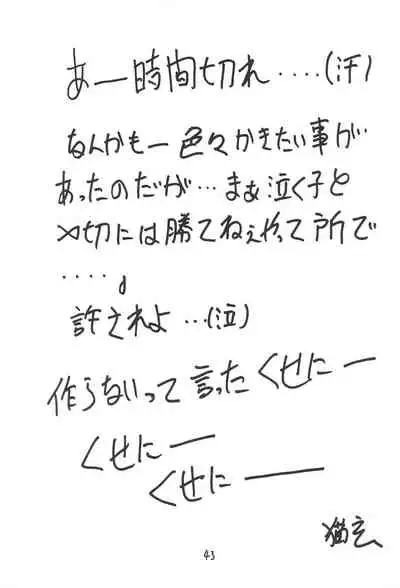 あー時間切れ‥‥(汗)
なんかもー色々かきたい事が
あったのだが…まぁ泣く子と
〆切には勝てねぇやって所で
‥‥。
許されよ…(泣)
作らないって言ったくせにー
くせにー
くせにー
猫玄
43